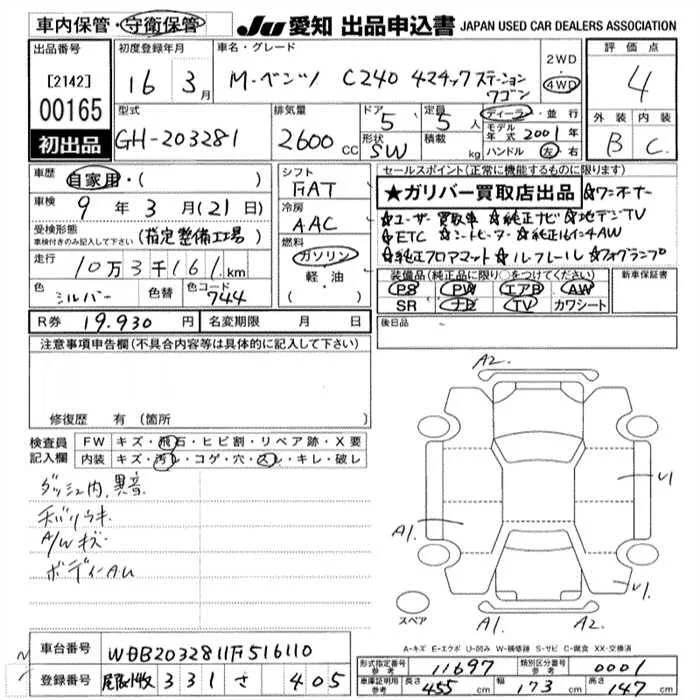 車内保管・守衛保管 JU 愛知 出品申込書 JAPAN USED CAR DEALERS ASSOCIATION
出品番号 初度登録年月 車名・グレード 評価点
[2142] 16 3月 M-ベンツ C240 4マチック ステーションワゴン 2WD 4WD 4
00165
初出品
型式 排気量 ドア 定員 ディーラ・並行 外装 内装
GH-203281 2600cc 5 5人 モデル年式 2001年 B C
形状 積載 ハンドル 左・右
SW kg
車歴 自家用・( ) シフト セールスポイント(正常に機能するものに限ります)
FAT ★ガリバー買取店出品 ☆ワンオーナー
車検 9年3月(21日) 冷房 ☆ユーザー買取車 ☆純正ナビ ☆地デジTV
AAC ☆ETC ☆シートヒーター ☆純正17インチAW
受検形態 (指定整備工場) 燃料 ☆純正フロアマット ☆ルーフレール ☆フォグランプ
車検付きのみ記入して下さい ガソリン
走行 10万3千161km 軽・油 装備品(純正品に限り○をつけてください) 新車保証書
( ) PS PW エアB AW
色 シルバー 色替 色コード 744 SR ナビ TV カワシート
R券 19.930円 名変期限 月 日 後日品
注意事項申告欄(不具合内容等は具体的に記入して下さい)
A2.
修復歴 有 (箇所
検査員 FW キズ・飛石・ヒビ割・リペア跡・X要
記入欄 内装 キズ・汚レ・コゲ・穴・スレ・キレ・破レ
ダッシュ内,異音
チバリウキ
A/Wキズ
ボディーAU
U1
A1.
U1.
スペア
A1 A2
A-キズ E-エクボ U-凹み W-補修跡 S-サビ C-腐食 XX-交換済
車台番号 WDB2032811F516110
形式指定番号 参考 11697 類別区分番号 参考 0001
登録番号 尾張小牧 331 さ 405
車庫証明用 参考 長さ 455cm 幅 173cm 高さ 147cm